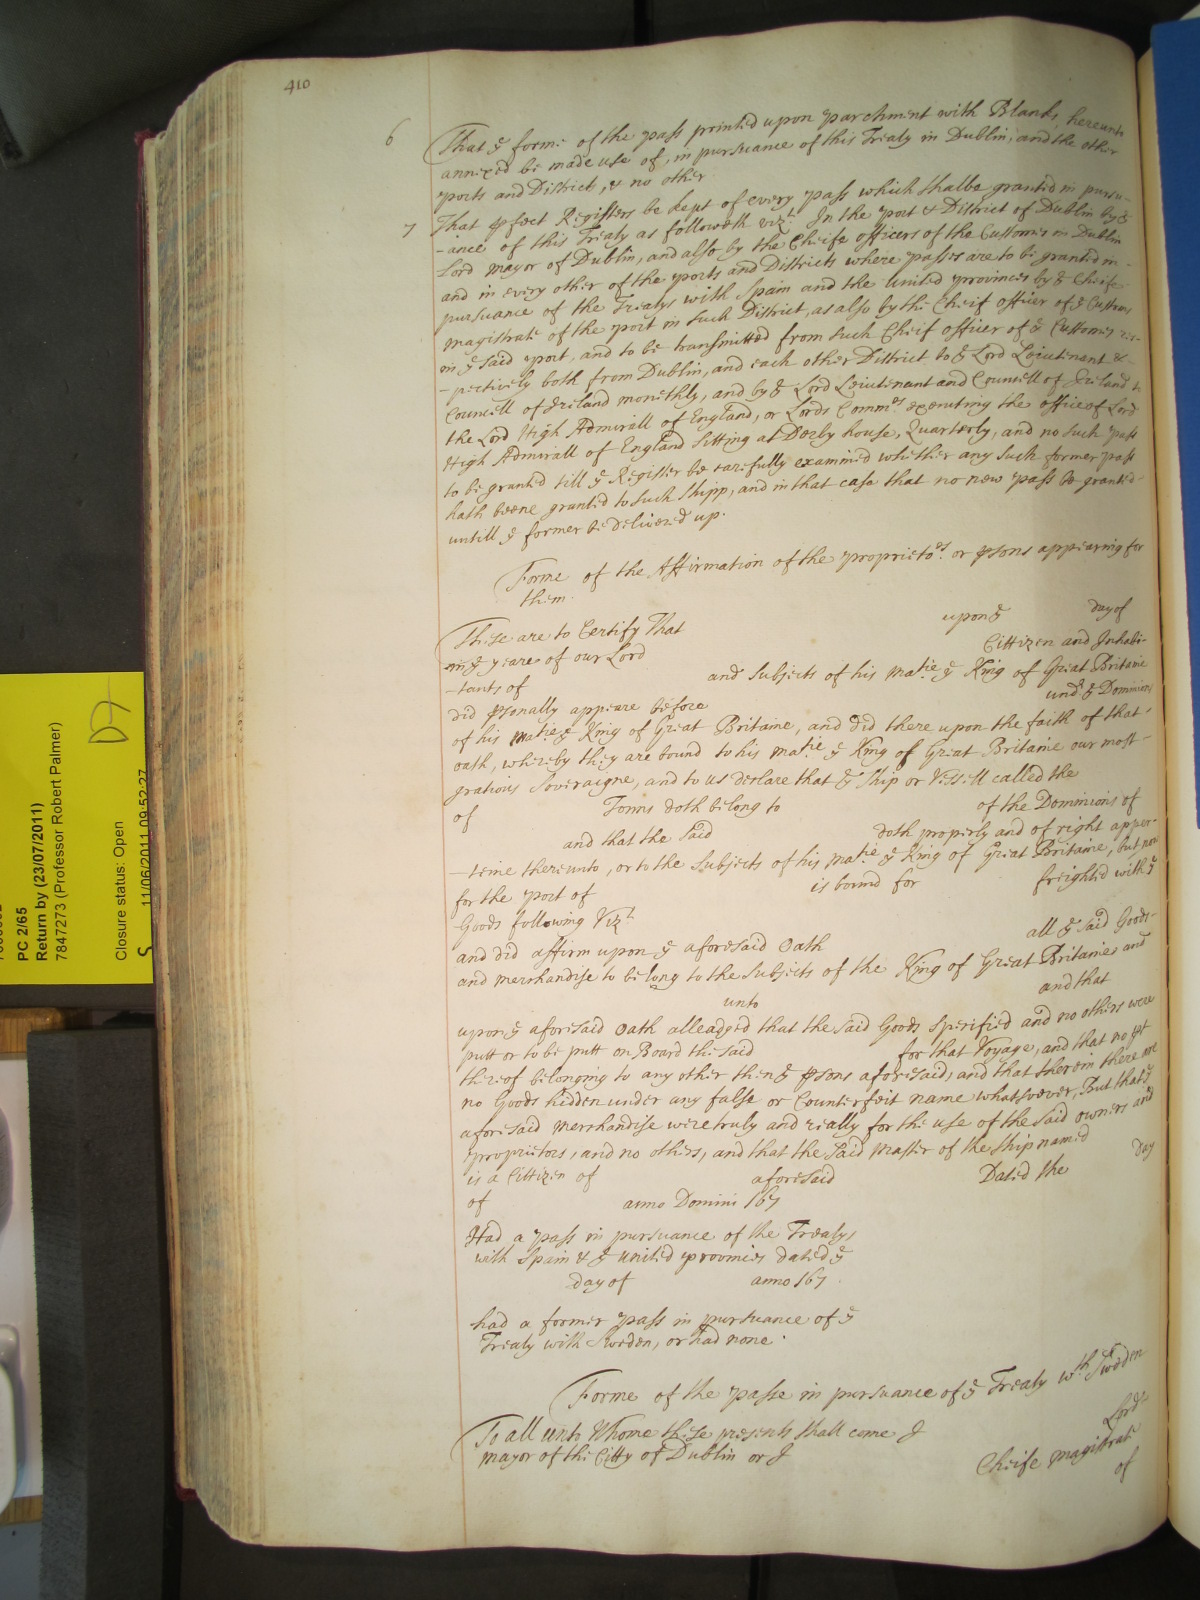 410
6 That ye forme of the pass printed upon parchment with Blanks, hereunto
annexed be made use of, in pursuance of this Treaty in Dublin, and the other
ports and Districts, & no other
7 That pfect Registers be kept of every pass which shalbe granted in pursu-
-ance of this Treaty as followeth vizt. In the port & District of Dublin by ye
Lord Mayor of Dublin, and also by the Cheife officers of the Customes in Dublin
and in every other of the ports and Districts where passes are to be granted in
pursuance of the Treatys with Spain and the united provinces by ye Cheife
magistrate of the port in such District, as also by the Cheif officer of ye Customs
in ye said port, and to be transmitted from such Cheif officer of ye Customes res-
-pectively both from Dublin, and each other District to ye Lord Leiutenant &
Councell of Ireland monethly, and by ye Lord Leiutenant and Councell of Ireland to
the Lord High Admirall of England, or Lords Comm.rs executing the office of Lord
High Admirall of England sitting at Derby house, Quarterly, and no such pass
to be granted till ye Register be carefully examined whether any such former pass
hath beene granted to such Shipp, and in that case that no new pass be granted
untill ye former be delivered up.
Forme of the Affirmation of the proprieto.rs or psons appearing for
them.
These are to Certify That upon ye day of
in ye yeare of our Lord Cittizen and Inhabi-
-tants of and Subjects of his Ma.tie ye King of Great Britaine
did psonally appeare before und.r ye Dominion
of his Ma.tie ye King of Great Britaine, and did there upon the faith of that
oath, whereby they are bound to his Ma.tie ye King of Great Britaine our most
gratious Soveraigne, and to us declare that ye Ship or Vessell called the
of Tonns doth belong to of the Dominions of
and that the said doth properly and of right apper-
-teine thereunto, or to the Subjects of his Ma.tie ye King of Great Britaine, but now
for the port of is bound for freighted with ye
Goods following Vizt
and did affirm upon ye aforesaid Oath all ye said Goods
and merchandise to belong to the Subjects of the King of Great Britaine and
unto and that
upon ye aforesaid Oath alleadged that the said Goods specified and no others were
putt or to be putt on Board the said for that Voyage, and that no pt
thereof belonging to any other then ye psons aforesaid, and that therein there are
no Goods hidden under any false or Counterfeit name whatsoever, But that ye
aforesaid Merchandise were truly and really for the use of the said owners and
proprietors, and no others, and that the said Master of the Ship named
is a Cittizen of aforesaid Dated the day
of anno Domini 167
Had a pass in pursuance of the Treaty,
with Spain & ye united provinces dated ye
day of anno 167 .
had a former pass in pursuance of ye
Treaty with Sweden, or had none.
Forme of the passe in pursuance of ye Treaty wth Sweden
To all unto Whome these presents shall come I Lord
mayor of the Citty of Dublin or I Cheife magistrate
of
PC 2/65
Return by (23/07/2011)
7847273 (Professor Robert Palmer)
Closure status: Open
S 11/06/2011 09:52:27